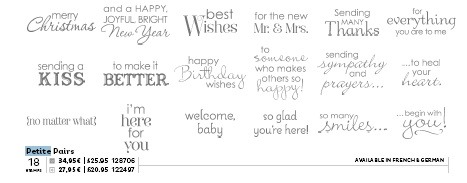 merry
Christmas
and a HAPPY,
JOYFUL, BRIGHT
New Year
best
Wishes
for the new
Mr. & Mrs.
Sending
MANY
Thanks
for
everything
you are to me
sending a
KISS
to make it
BETTER
happy
Birthday
wishes
to
Someone
who makes
others so
happy!
sending
sympathy
and
prayers...
...to heal
your
heart.
{no matter what}
i'm
here
for
you
welcome,
baby
so glad
you're here!
so many
smiles...
...begin with
you!
Petite Pairs
18
STAMPS
34,95 € | £25.95 128706
27,95 € | £20.95 122497
AVAILABLE IN FRENCH & GERMAN